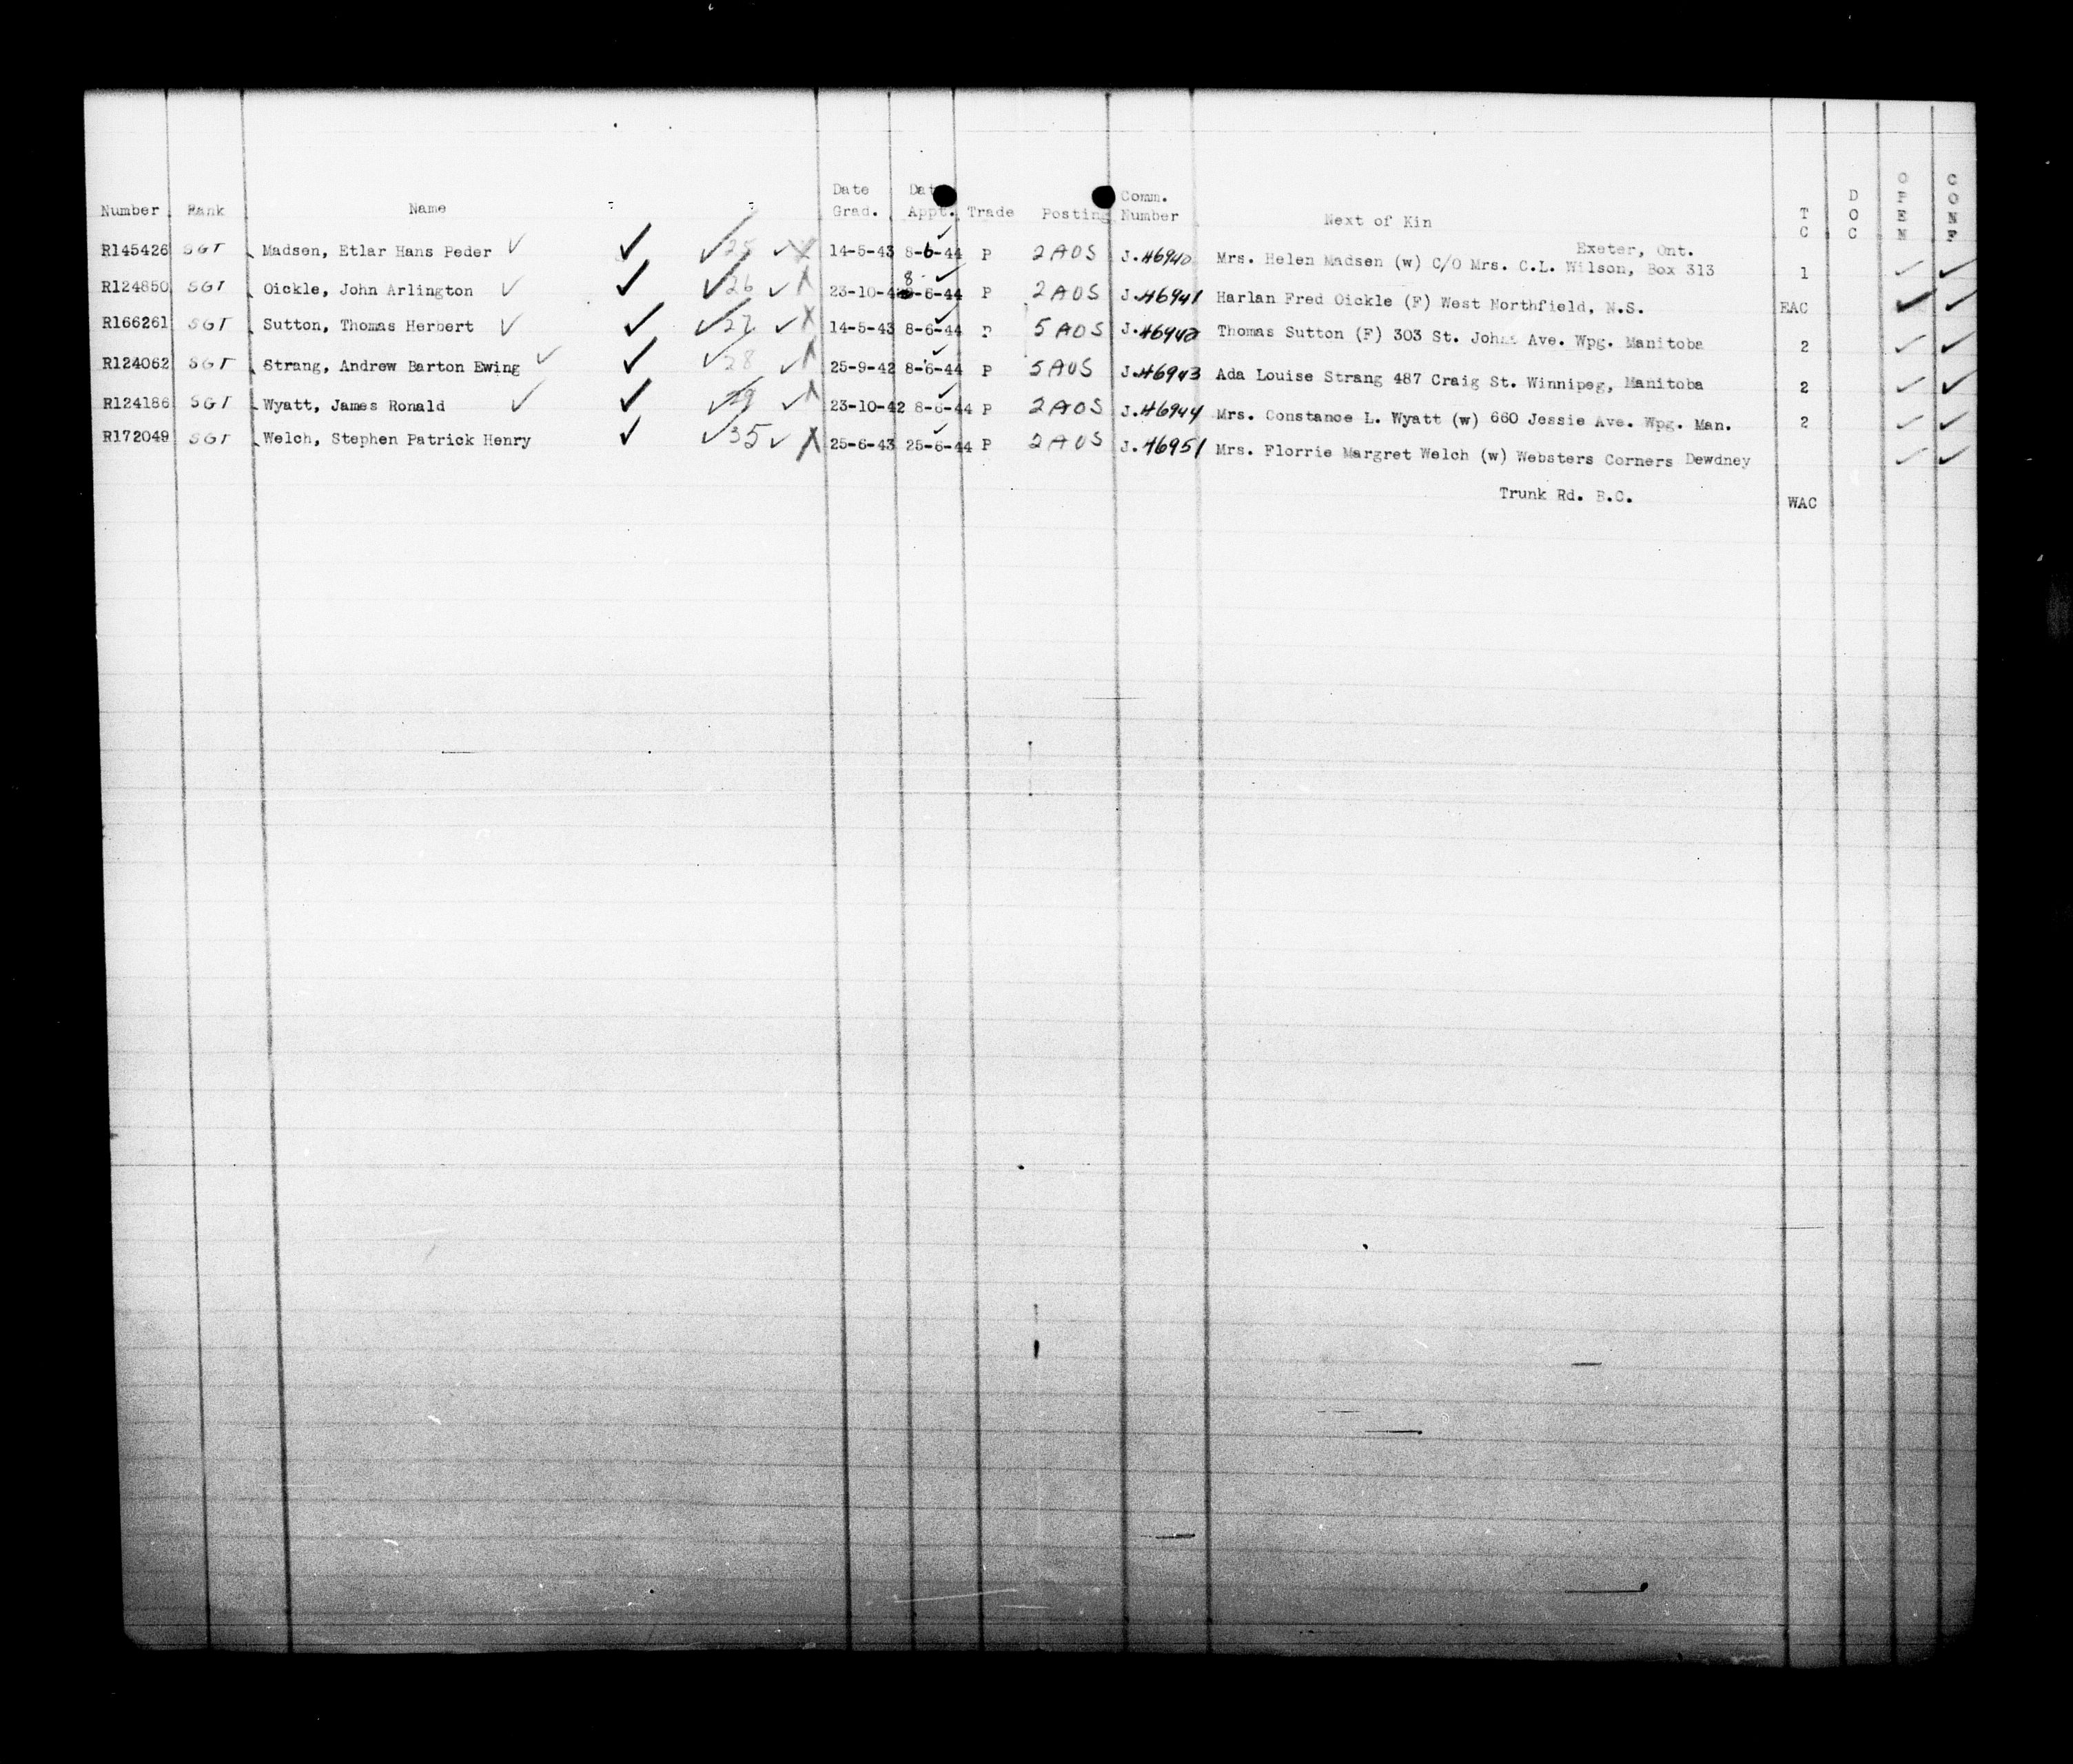 Number Rank Name Date Grad. Date Appt. Trade Posting Comm. Number Next of Kin T C D O C O P E N C O N F
R145426 SGT Madsen, Etlar Hans Peder ✓ ✓ ✓ 25 ✓ X 14-5-43 8-6-44 P 2 AOS J.46940 Mrs. Helen Madsen (w) C/O Mrs. C.L. Wilson, Box 313 Exeter, Ont. 1 ✓ ✓
R124850 SGT Oickle, John Arlington ✓ ✓ ✓ 26 ✓ X 23-10-4 8-6-44 P 2 AOS J.46941 Harlan Fred Oickle (F) West Northfield, N.S. EAC ✓ ✓
R166261 SGT Sutton, Thomas Herbert ✓ ✓ ✓ 27 ✓ X 14-5-43 8-6-44 P 5 AOS J.46942 Thomas Sutton (F) 303 St. Johns Ave. Wpg. Manitoba 2 ✓ ✓
R124062 SGT Strang, Andrew Barton Ewing ✓ ✓ ✓ 28 ✓ X 25-9-42 8-6-44 P 5 AOS J.46943 Ada Louise Strang 487 Craig St. Winnipeg, Manitoba 2 ✓ ✓
R124186 SGT Wyatt, James Ronald ✓ ✓ ✓ 29 ✓ X 23-10-42 8-6-44 P 2 AOS J.46944 Mrs. Constance L. Wyatt (w) 660 Jessie Ave. Wpg. Man. 2 ✓ ✓
R172049 SGT Welch, Stephen Patrick Henry ✓ ✓ 35 ✓ X 25-6-43 25-6-44 P 2 AOS J.46951 Mrs. Florrie Margret Welch (w) Websters Corners Dewdney ✓ ✓
Trunk Rd. B.C. WAC